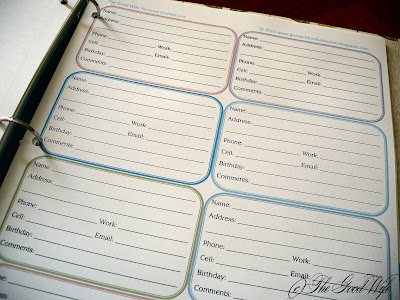 The Good Wife Personal Contact List
Name:
Address:
Phone: Work:
Cell: Email:
Birthday:
Comments:
Name:
Address:
Phone: Work:
Cell: Email:
Birthday:
Comments:
Name:
Address:
Phone: Work:
Cell: Email:
Birthday:
Comments:
Name:
Address:
Phone: Work:
Cell: Email:
Birthday:
Comments:
Name:
Address:
Phone: Work:
Cell: Email:
Birthday:
Comments:
Name:
Address:
Phone: Work:
Cell: Email:
Birthday:
Comments:
© The Good Wife